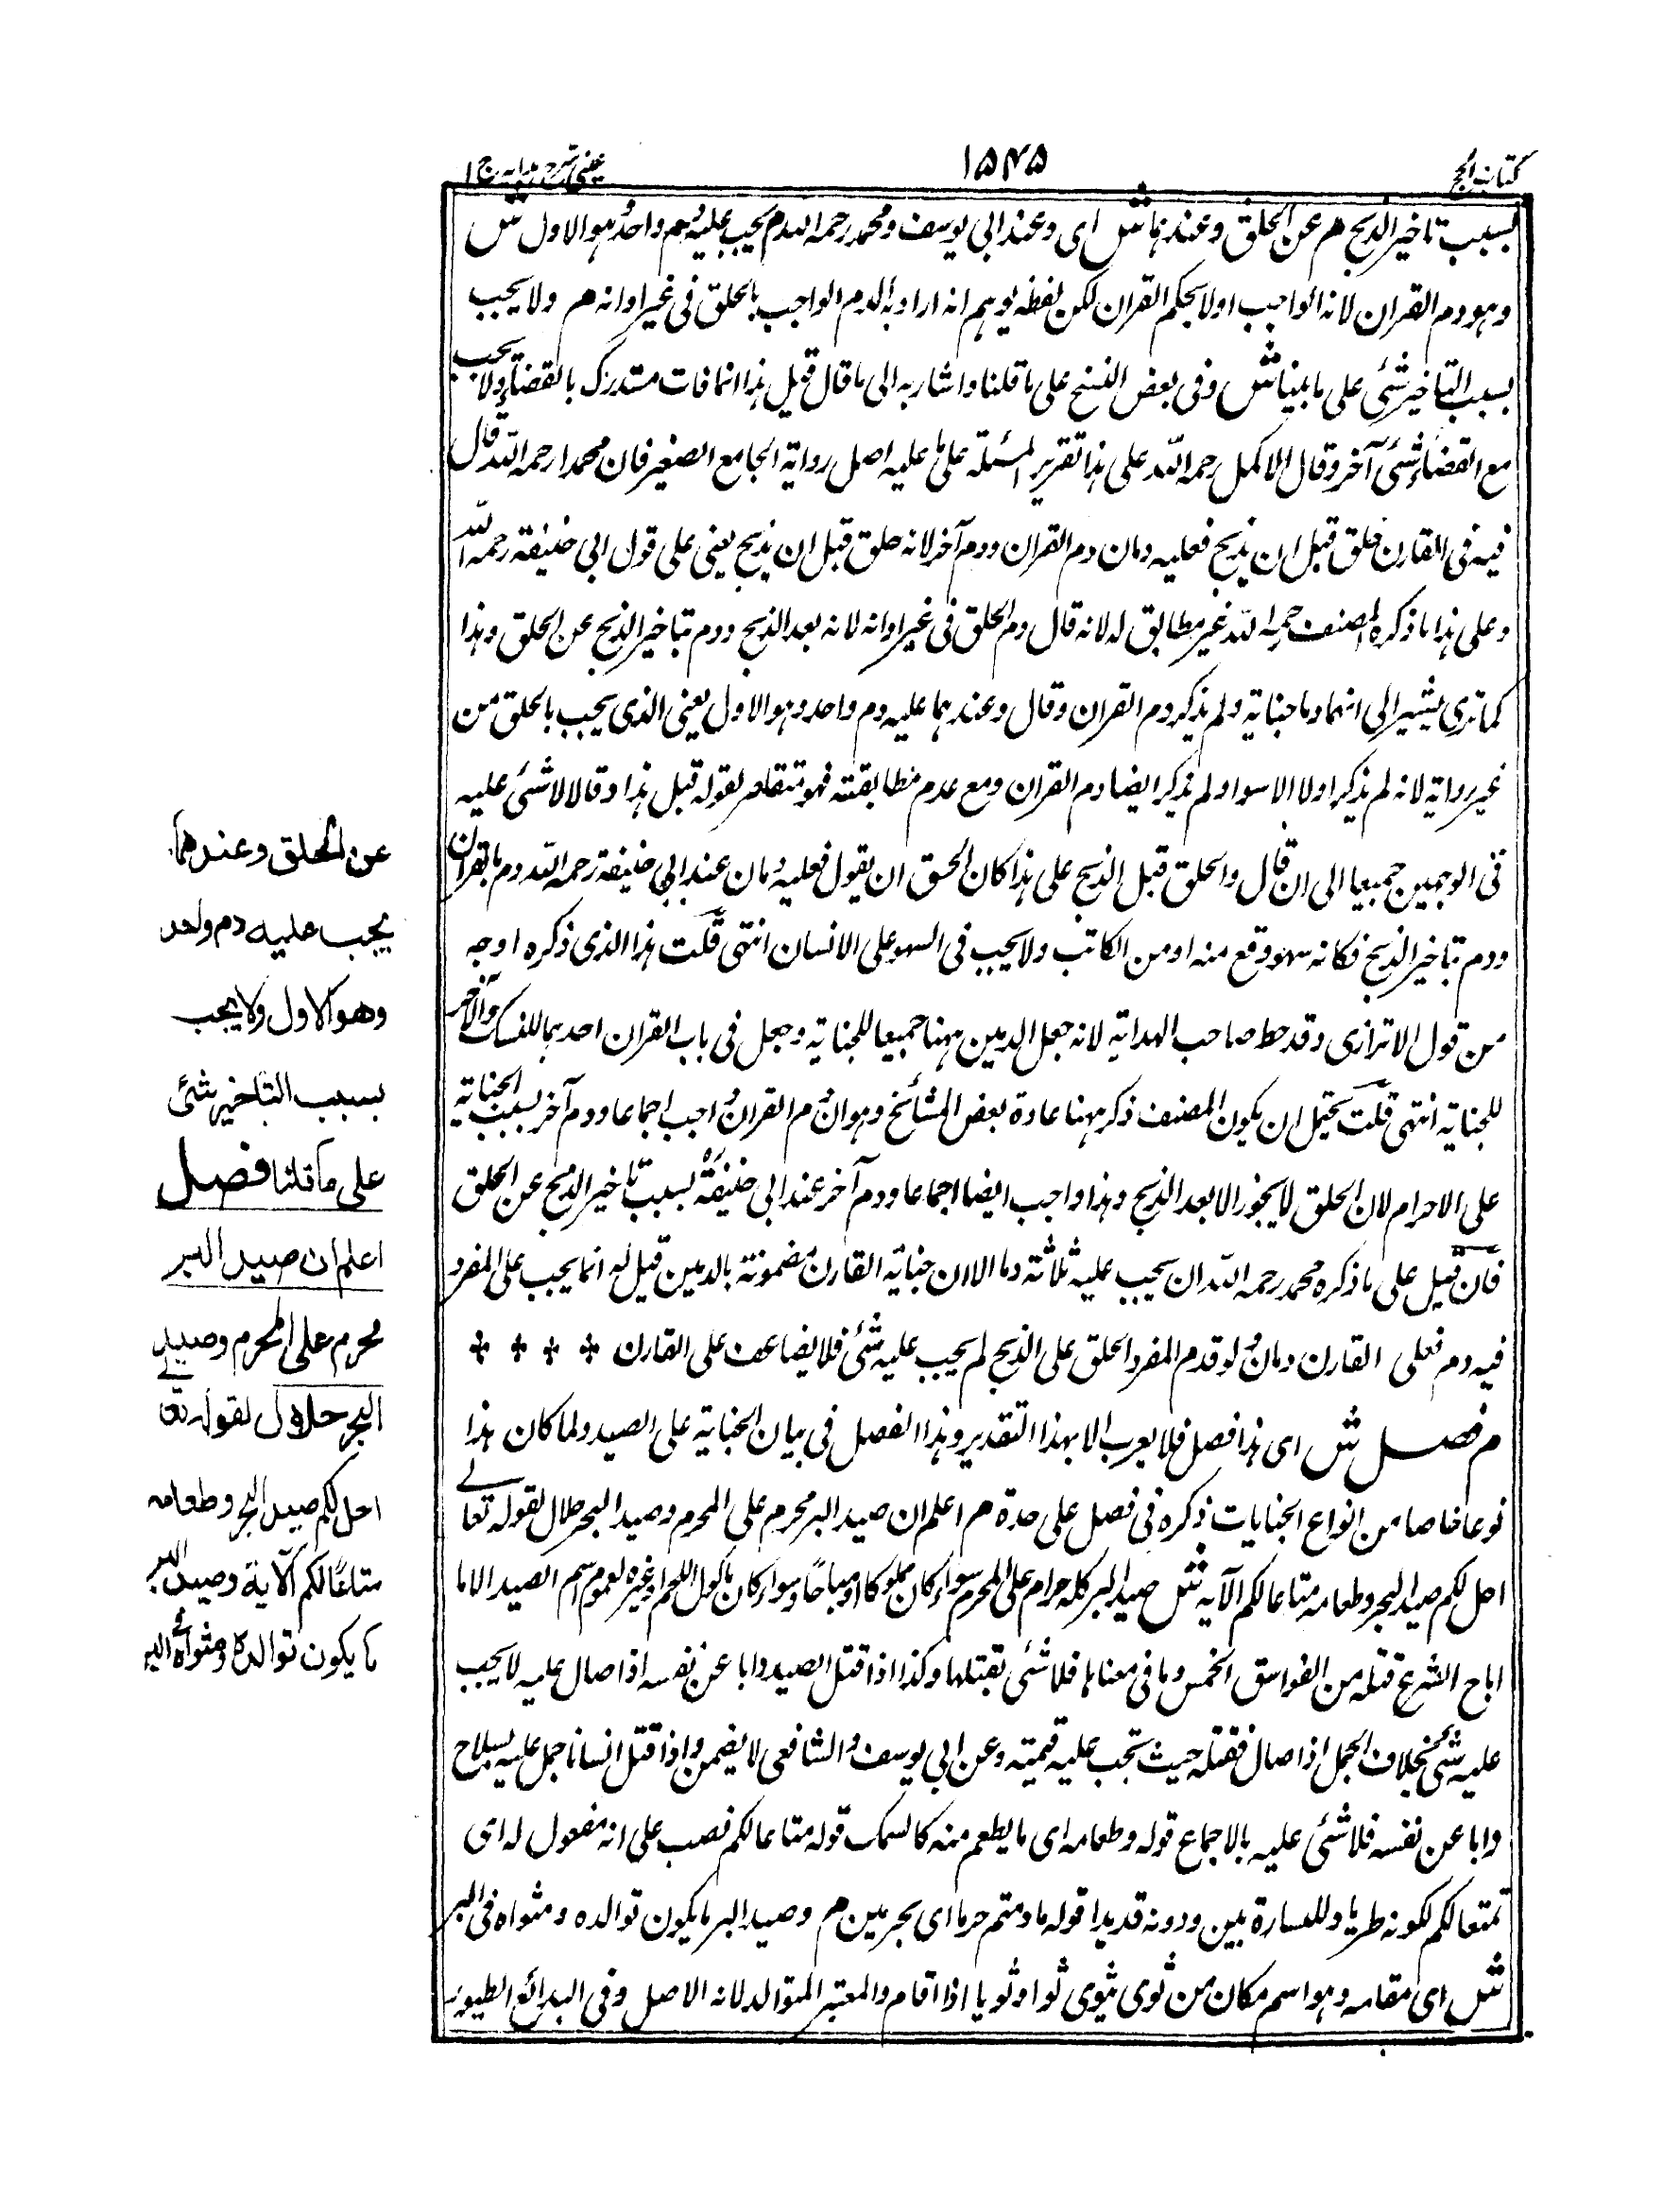 كتاب الحج
١٥٤٥
عينى شرح هدايه ج ١
بسبب تاخير الذبح هم عن الحلق وعندهما ش اى وعند ابى يوسف ومحمد رحمه الله دم يجب عليه دم واحد وهو الاول ش
وهو دم القران لانه الواجب اولا بحكم القران لكن لفظه يوهم انه اراد به الدم الواجب بالحلق فى غير اوانه هم ولا يجب
بسبب التاخير شئ على ما بينا ش وفى بعض النسخ على ما قلنا واشار به الى ما قال قبل هذا انما فات مستدرك بالقضاء ولا يجب
مع القضاء شئ آخر وقال الاكمل رحمه الله على هذا تقرير المسئلة على ما عليه اصل رواية الجامع الصغير فان محمدا رحمه الله قال
فيه فى القارن حلق قبل ان يذبح فعليه دمان دم القران ودم آخر لانه حلق قبل ان يذبح يعنى على قول ابى حنيفة رحمه الله
وعلى هذا ما ذكره المصنف رحمه الله غير مطابق له لانه قال دم الحلق فى غير اوانه لانه بعد الذبح ودم بتاخير الذبح عن الحلق وهذا
كما ترى يشير الى انهما دما جناية ولم يذكر دم القران وقال وعندهما عليه دم واحد وهو الاول يعنى الذى يجب بالحلق من
غير رواية لانه لم يذكر اولا الا سوا ولم يذكر ايضا دم القران ومع عدم مطابقته فهو متناقض لقوله قبل هذا وقالا لا شئ عليه
فى الوجهين جميعا الى ان قال والحلق قبل الذبح على هذا كان الحق ان يقول فعليه دمان عند ابى حنيفة رحمه الله دم بالقران
ودم بتاخير الذبح فكانه سهو وقع منه او من الكاتب ولا يجب فى السهو على الانسان انتهى قلت هذا الذى ذكره اوجه
من قول الاترازى وقد خبط صاحب الهداية لانه جعل الدمين ههنا جميعا للجناية وجعل فى باب القران احدهما للنسك والآخر
للجناية انتهى قلت يحتمل ان يكون المصنف ذكر ههنا عادة بعض المشائخ وهو ان دم القران واجب اجماعا ودم آخر بسبب الجناية
على الاحرام لان الحلق لا يجوز الا بعد الذبح وهذا واجب ايضا اجماعا ودم آخر عند ابى حنيفة بسبب تاخير الذبح عن الحلق
فان قيل على ما ذكره محمد رحمه الله ان يجب عليه ثلاثة دما الا ان جناية القارن مضمونة بالدمين قيل له انما يجب على المفرد
فيه دم فعلى القارن دمان لو قدم المفرد الحلق على الذبح لم يجب عليه شئ فلا يضاعف على القارن
م فصل ش اى هذا فصل فلا يعرب الا بهذا التقدير وهذا الفصل فى بيان الجناية على الصيد ولما كان هذا
نوعا خاصا من انواع الجنايات ذكره فى فصل على حدة هم اعلم ان صيد البر محرم على المحرم وصيد البحر حلال لقوله تعالے
احل لكم صيد البحر وطعامه متاعا لكم الآية ش صيد البر كله حرام على المحرم سواء كان مملوكا او مباحا وسواء كان ماكول اللحم او غيره لعموم اسم الصيد الا ما
اباح الشرع قتله من الفواسق الخمس وما فى معناها فلا شئ بقتلها وكذا اذا قتل الصيد دابا عن نفسه اذا صال عليه لا يجب
عليه شئ بخلاف الجمل اذا صال فقتله حيث تجب عليه قيمته وعن ابى يوسف والشافعى لا يضمن واذا قتل انسانا حمل عليه بسلاح
دابا عن نفسه فلا شئ عليه بالاجماع قوله وطعامه اى ما يطعم منه كالسمك قوله متاعا لكم نصب على انه مفعول له اى
تمتعا لكم لكونه طريا وللسيارة يتزودونه قديدا قوله ما دمتم حرما اى محرمين هم وصيد البر ما يكون توالده ومثواه فى البر
ش اى مقامه وهو اسم مكان من ثوى يثوى ثوا وثويا اذا اقام والمعتبر التوالد لانه الاصل وفى البدائع الطيور
عن الحلق وعندهما
يجب عليه دم واحد
وهو الاول ولا يجب
بسبب التاخير شئ
على ما قلنا فصل
اعلم ان صيد البر
محرم على المحرم وصيد
البحر حلال لقوله تعالے
احل لكم صيد البحر وطعامه
متاعًا لكم الآية وصيد البر
ما يكون توالده ومثواه فے البر